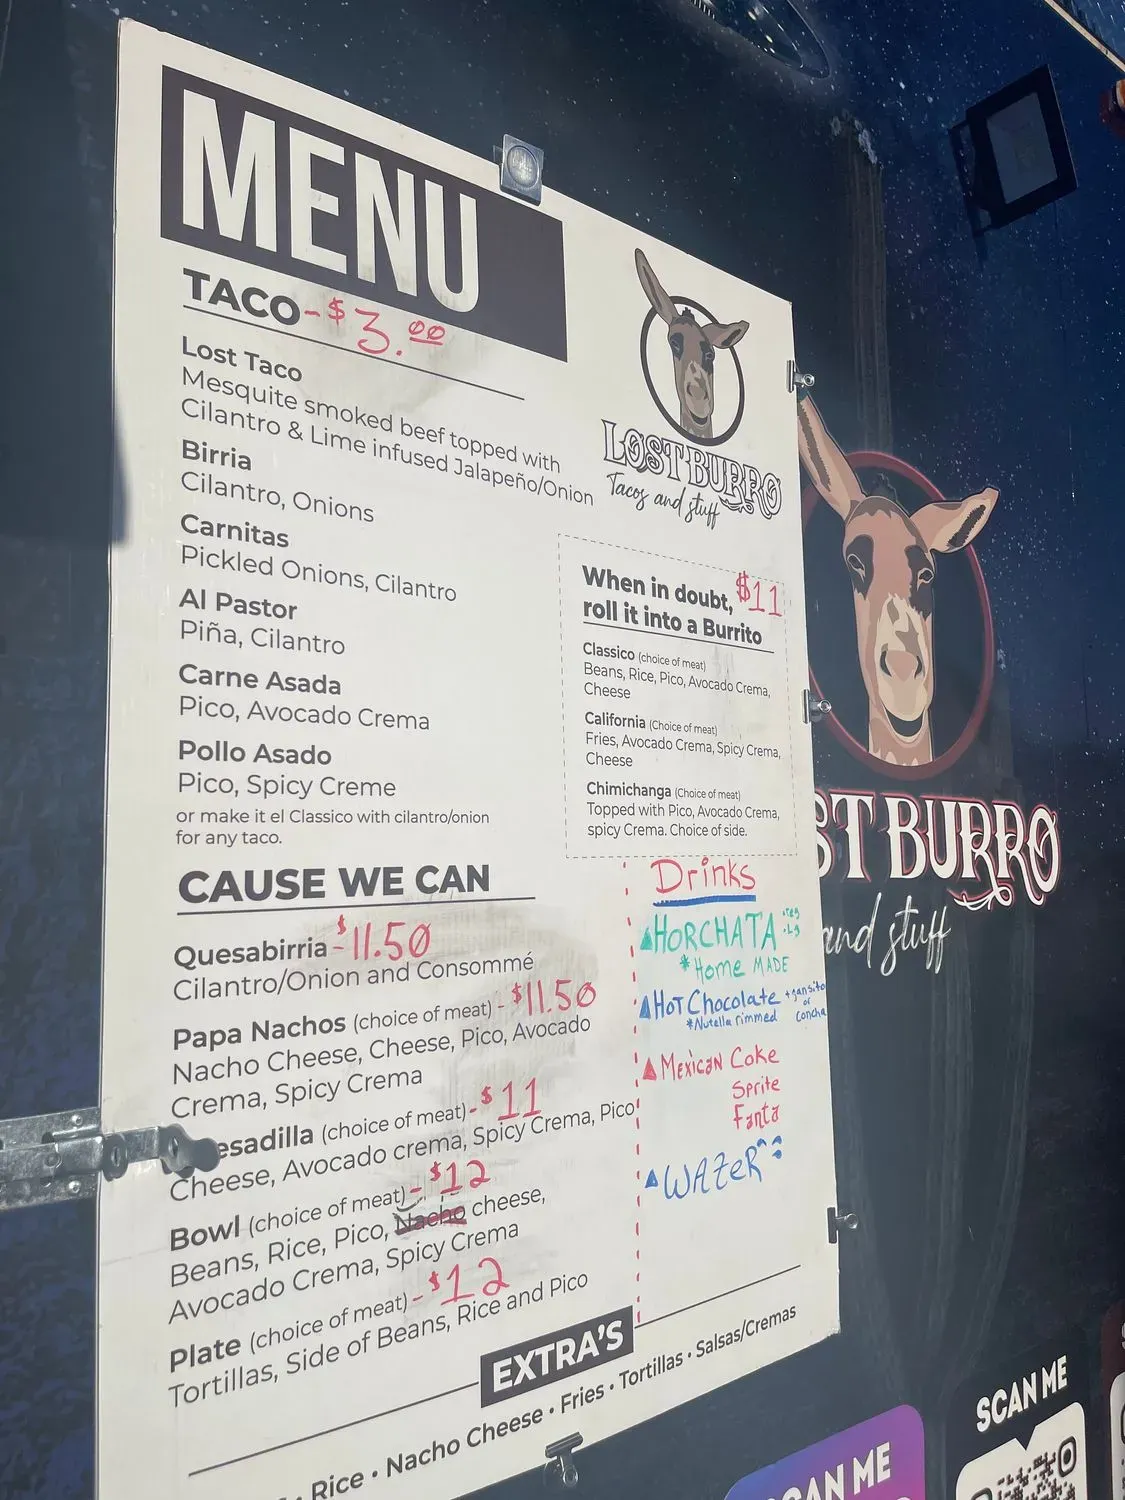 MENU
TACO-$3.00
Lost Taco
Mesquite smoked beef topped with
Cilantro & Lime infused Jalapeño/Onion
Birria
Cilantro, Onions
Carnitas
Pickled Onions, Cilantro
Al Pastor
Piña, Cilantro
Carne Asada
Pico, Avocado Crema
Pollo Asado
Pico, Spicy Creme
or make it el Classico with cilantro/onion
for any taco.
CAUSE WE CAN
Quesabirria-$11.50
Cilantro/Onion and Consommé
Papa Nachos (choice of meat)-$11.50
Nacho Cheese, Cheese, Pico, Avocado
Crema, Spicy Crema
esadilla (choice of meat)-$11
Cheese, Avocado crema, Spicy Crema, Pico
Bowl (choice of meat)-$12
Beans, Rice, Pico, Nacho cheese,
Avocado Crema, Spicy Crema
Plate (choice of meat)-$12
Tortillas, Side of Beans, Rice and Pico
LOST BURRO
Tacos and stuff
When in doubt, $11
roll it into a Burrito
Classico (choice of meat)
Beans, Rice, Pico, Avocado Crema,
Cheese
California (Choice of meat)
Fries, Avocado Crema, Spicy Crema,
Cheese
Chimichanga (Choice of meat)
Topped with Pico, Avocado Crema,
spicy Crema. Choice of side.
Drinks
HORCHATA
*Home MADE
Hot Chocolate +gansito
or
*Nutella rimmed concha
Mexican Coke
Sprite
Fanta
WAZeR
EXTRA'S
Rice • Nacho Cheese • Fries • Tortillas • Salsas/Cremas
ST BURRO
and stuff
SCAN ME
SCAN ME